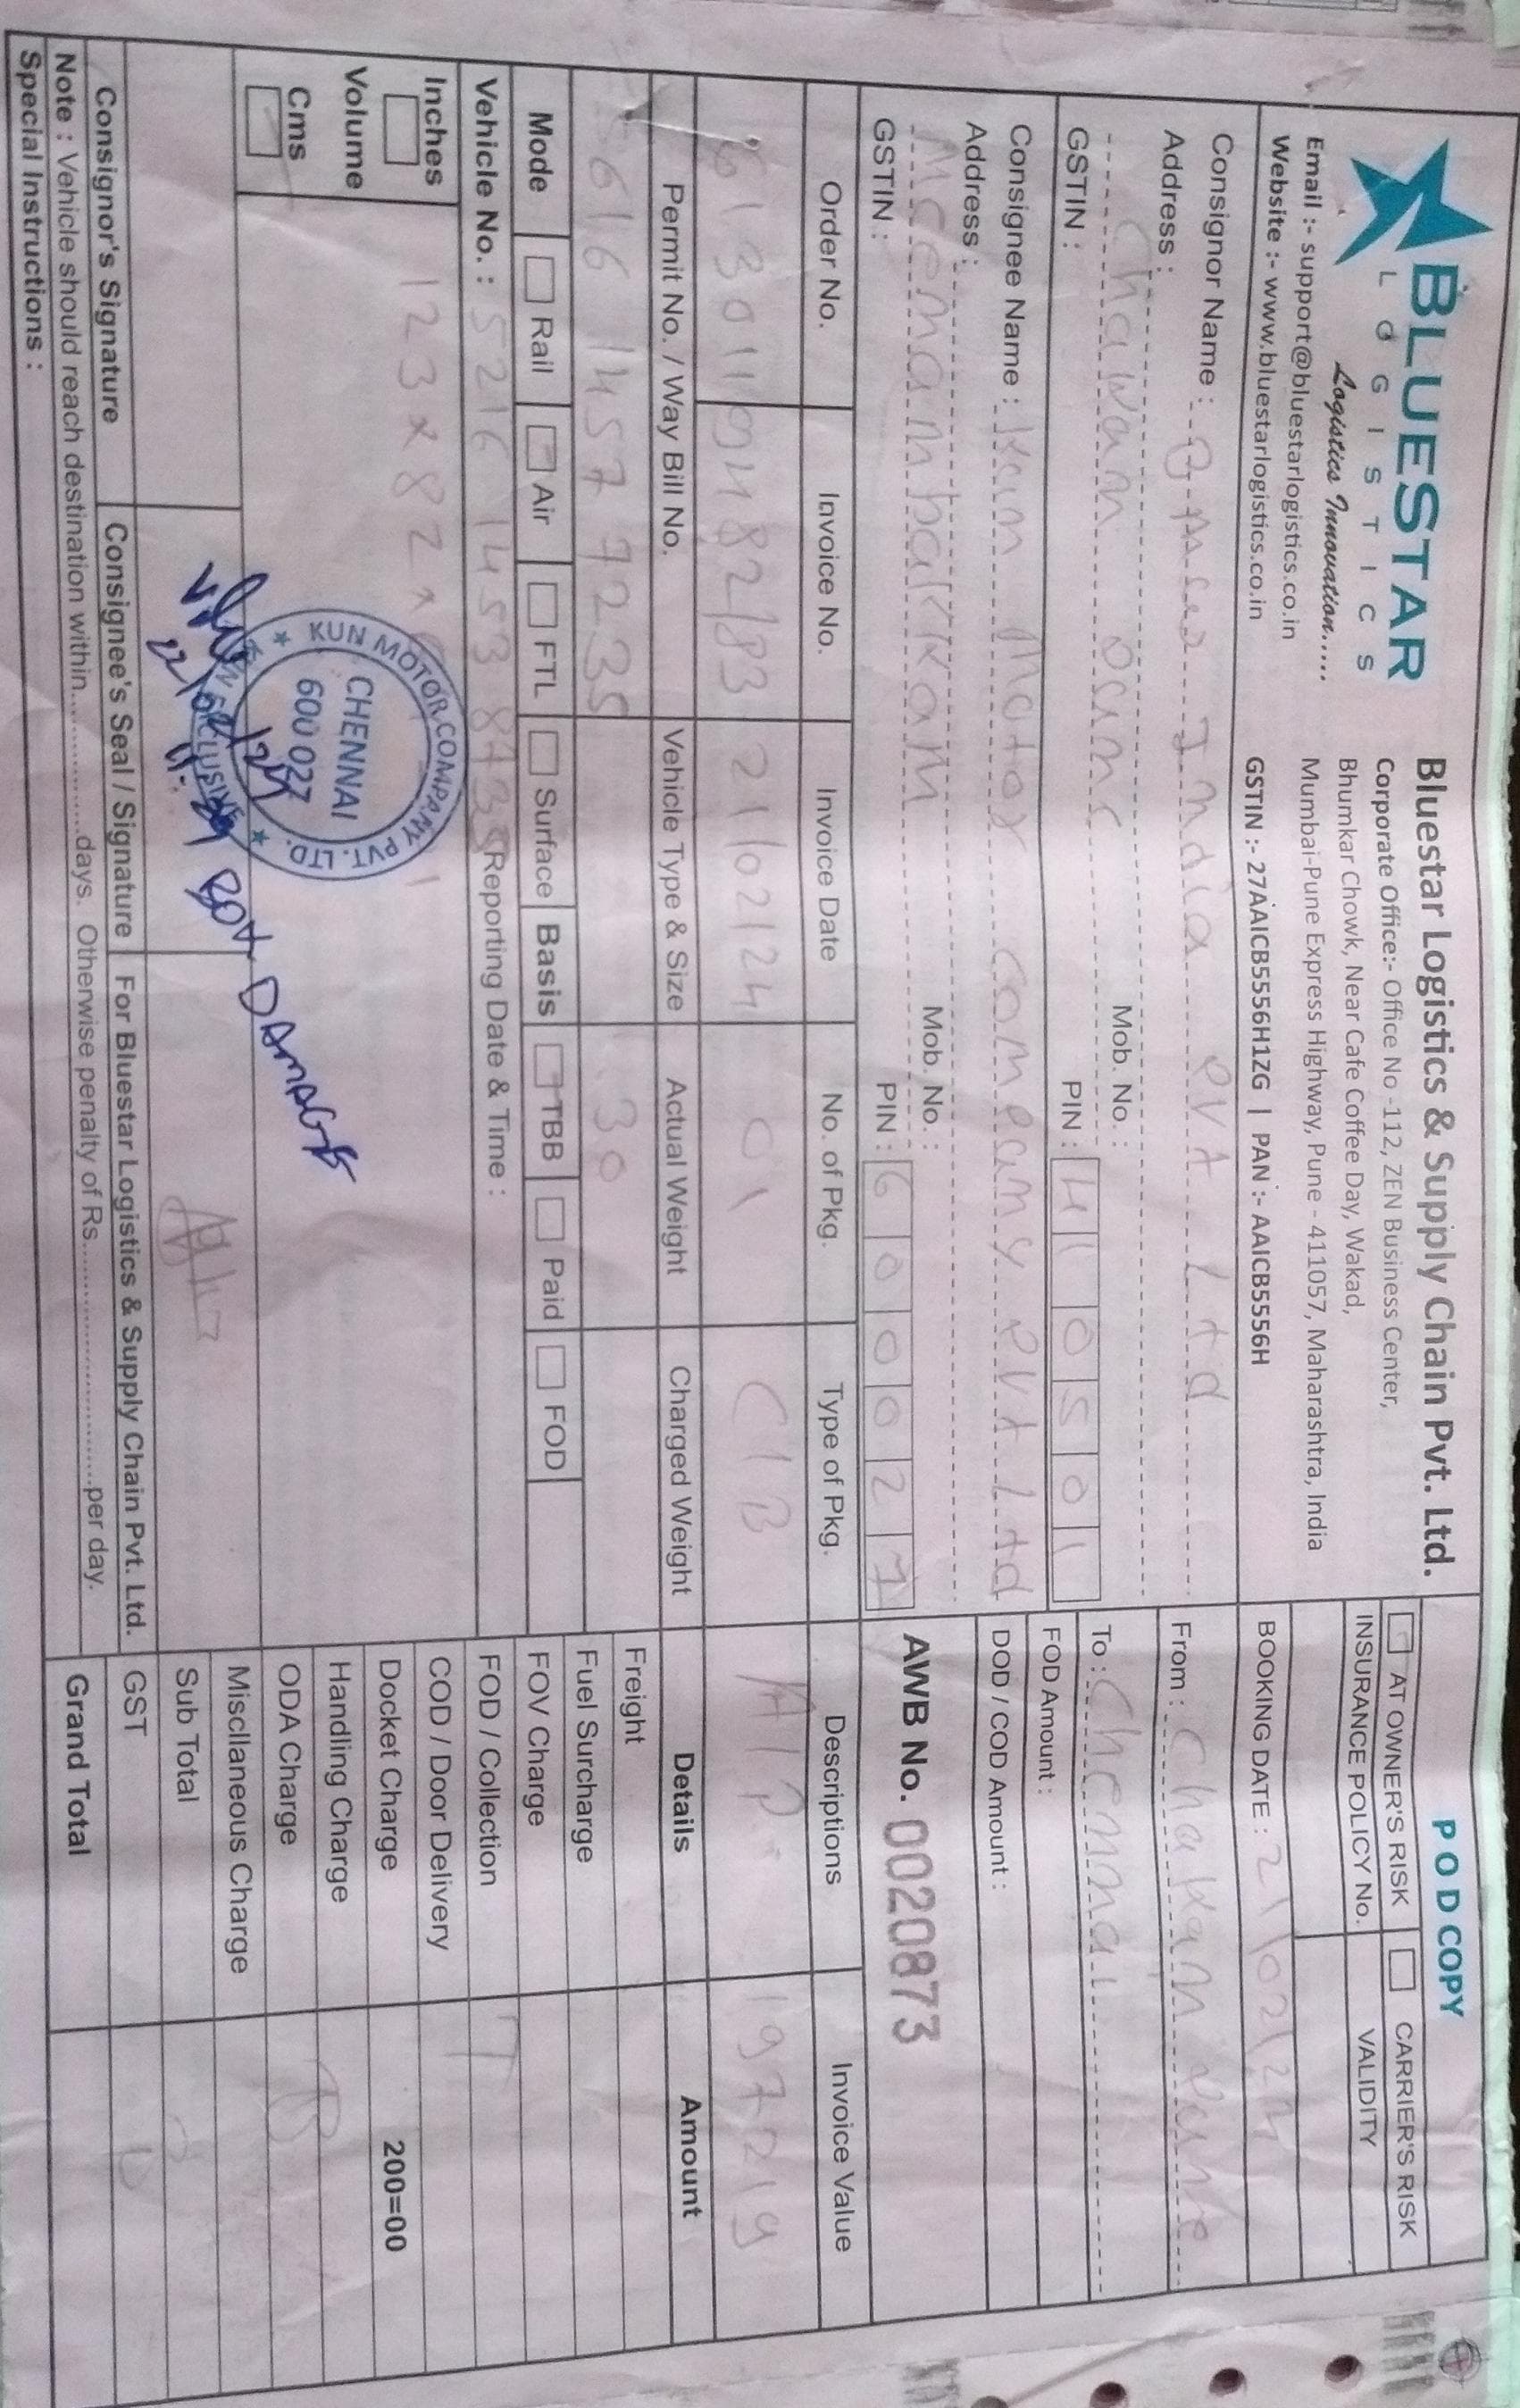 BLUESTAR
LOGISTICS
Logistics Innovation.....
Email :- support@bluestarlogistics.co.in
Website :- www.bluestarlogistics.co.in
Bluestar Logistics & Supply Chain Pvt. Ltd.
Corporate Office:- Office No -112, ZEN Business Center,
Bhumkar Chowk, Near Cafe Coffee Day, Wakad,
Mumbai-Pune Express Highway, Pune - 411057, Maharashtra, India
GSTIN :- 27AAICB5556H1ZG | PAN :- AAICB5556H
POD COPY
AT OWNER'S RISK CARRIER'S RISK
INSURANCE POLICY No. VALIDITY
BOOKING DATE : 21/02/24
Consignor Name : India Pvt Ltd
Address :
Chakan
Mob. No. :
GSTIN :
PIN : 410501
From : Chakan Pune
To : Chennai
FOD Amount :
DOD / COD Amount :
Consignee Name : Kun Motor Company Pvt Ltd
Address :
Meenambakkam
Mob. No. :
GSTIN :
PIN : 600027
AWB No. 0020873
Order No. Invoice No. Invoice Date No. of Pkg. Type of Pkg. Descriptions Invoice Value
613011 9482/83 21/02/24 01 C/B A/P 197219
Permit No. / Way Bill No. Vehicle Type & Size Actual Weight Charged Weight Details Amount
5616 1457 7235 30
Freight
Fuel Surcharge
Mode Rail Air FTL Surface Basis TBB Paid FOD
FOV Charge
Vehicle No. : 5216 1453 8735 Reporting Date & Time :
FOD / Collection T
Inches
123x82x
COD / Door Delivery
Docket Charge 200=00
Volume
Handling Charge
Cms
ODA Charge B
Miscllaneous Charge
Sub Total
GST
Grand Total
KUN MOTOR COMPANY PVT. LTD.
CHENNAI
600 027
KUN EXCLUSIVE
22/02/24
BOX DAMAGE
Consignor's Signature Consignee's Seal / Signature For Bluestar Logistics & Supply Chain Pvt. Ltd.
Note : Vehicle should reach destination within.................days. Otherwise penalty of Rs..............................per day.
Special Instructions :